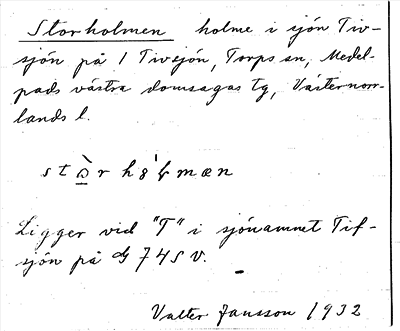 Storholmen holme i sjön Tiv-
sjön på 1 Tivsjön, Torps sn, Medel-
pads västra domsagas tg, Västernorr-
lands l.
Ligger vid "T" i sjönamnet Tif-
sjön på 74 S V.
Valter Jansson 1932